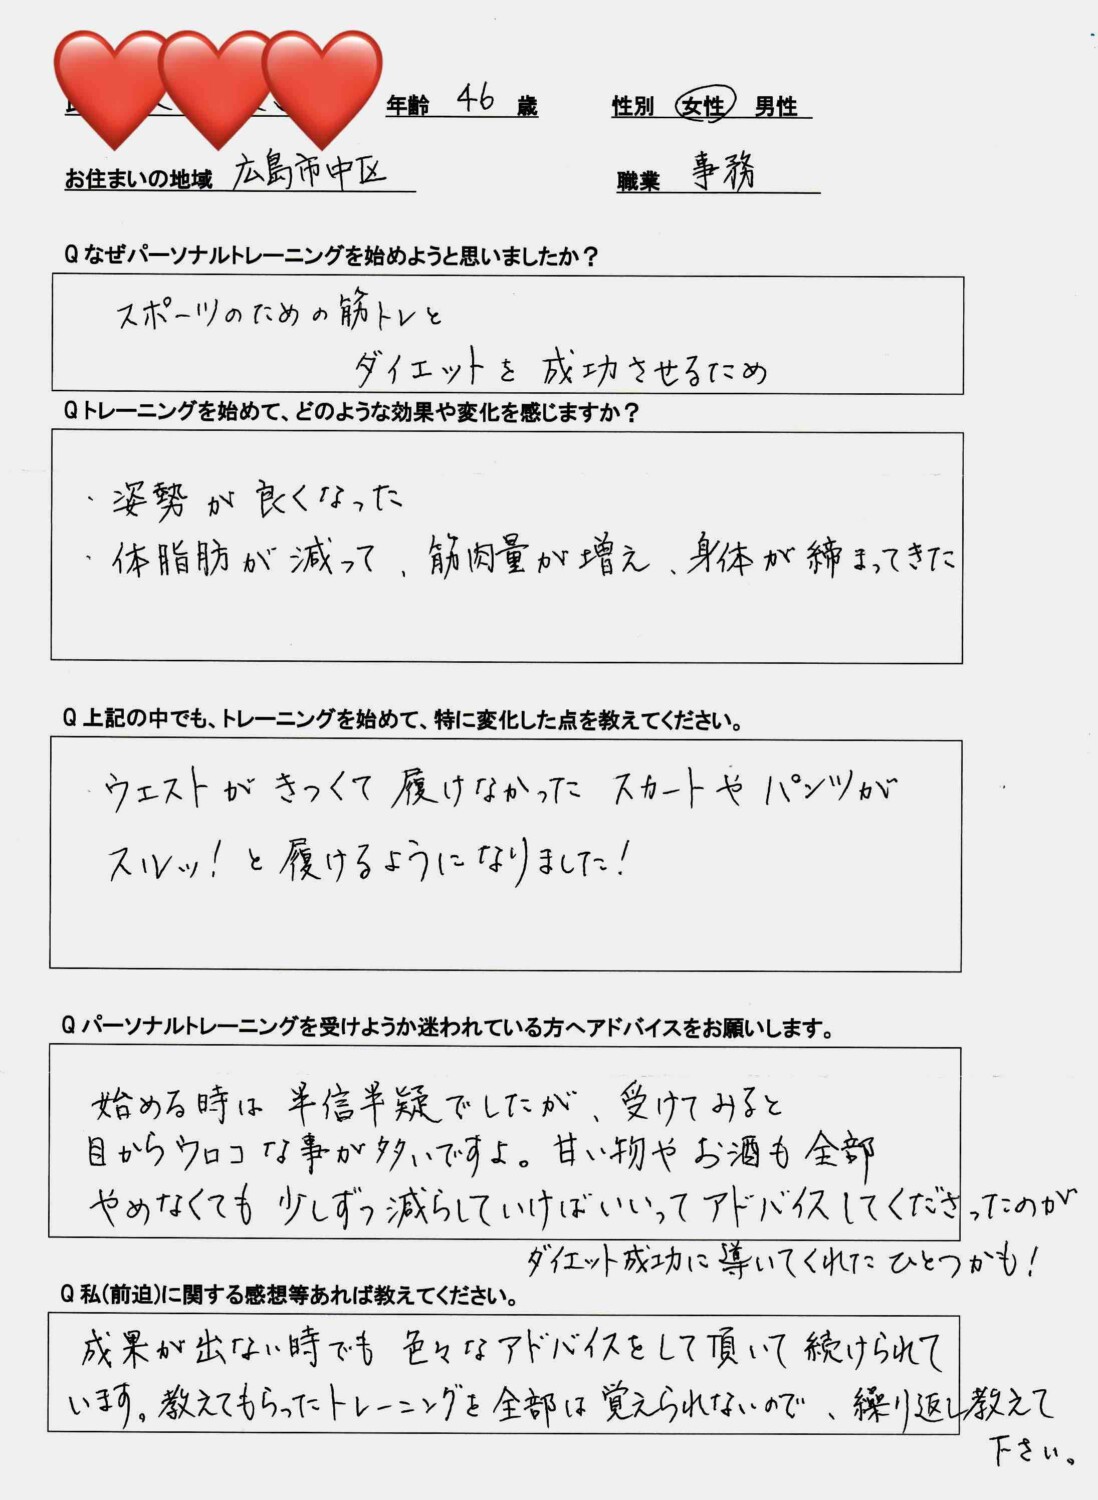 年齢 46 歳 性別 女性 男性
お住まいの地域 広島市中区 職業 事務
Q なぜパーソナルトレーニングを始めようと思いましたか？
スポーツのための筋トレと
ダイエットを成功させるため
Q トレーニングを始めて、どのような効果や変化を感じますか？
・姿勢が良くなった
・体脂肪が減って、筋肉量が増え、身体が締まってきた
Q 上記の中でも、トレーニングを始めて、特に変化した点を教えてください。
ウエストがきつくて履けなかったスカートやパンツが
スルッ！と履けるようになりました！
Q パーソナルトレーニングを受けようか迷われている方へアドバイスをお願いします。
始める時は半信半疑でしたが、受けてみると
目からウロコな事が多いですよ。甘い物やお酒も全部
やめなくても少しずつ減らしていけばいいってアドバイスしてくださったのが
ダイエット成功に導いてくれたひとつかも！
Q 私(前迫)に関する感想等あれば教えてください。
成果が出ない時でも色々なアドバイスをして頂いて続けられて
います。教えてもらったトレーニングを全部は覚えられないので、繰り返し教えて
下さい。